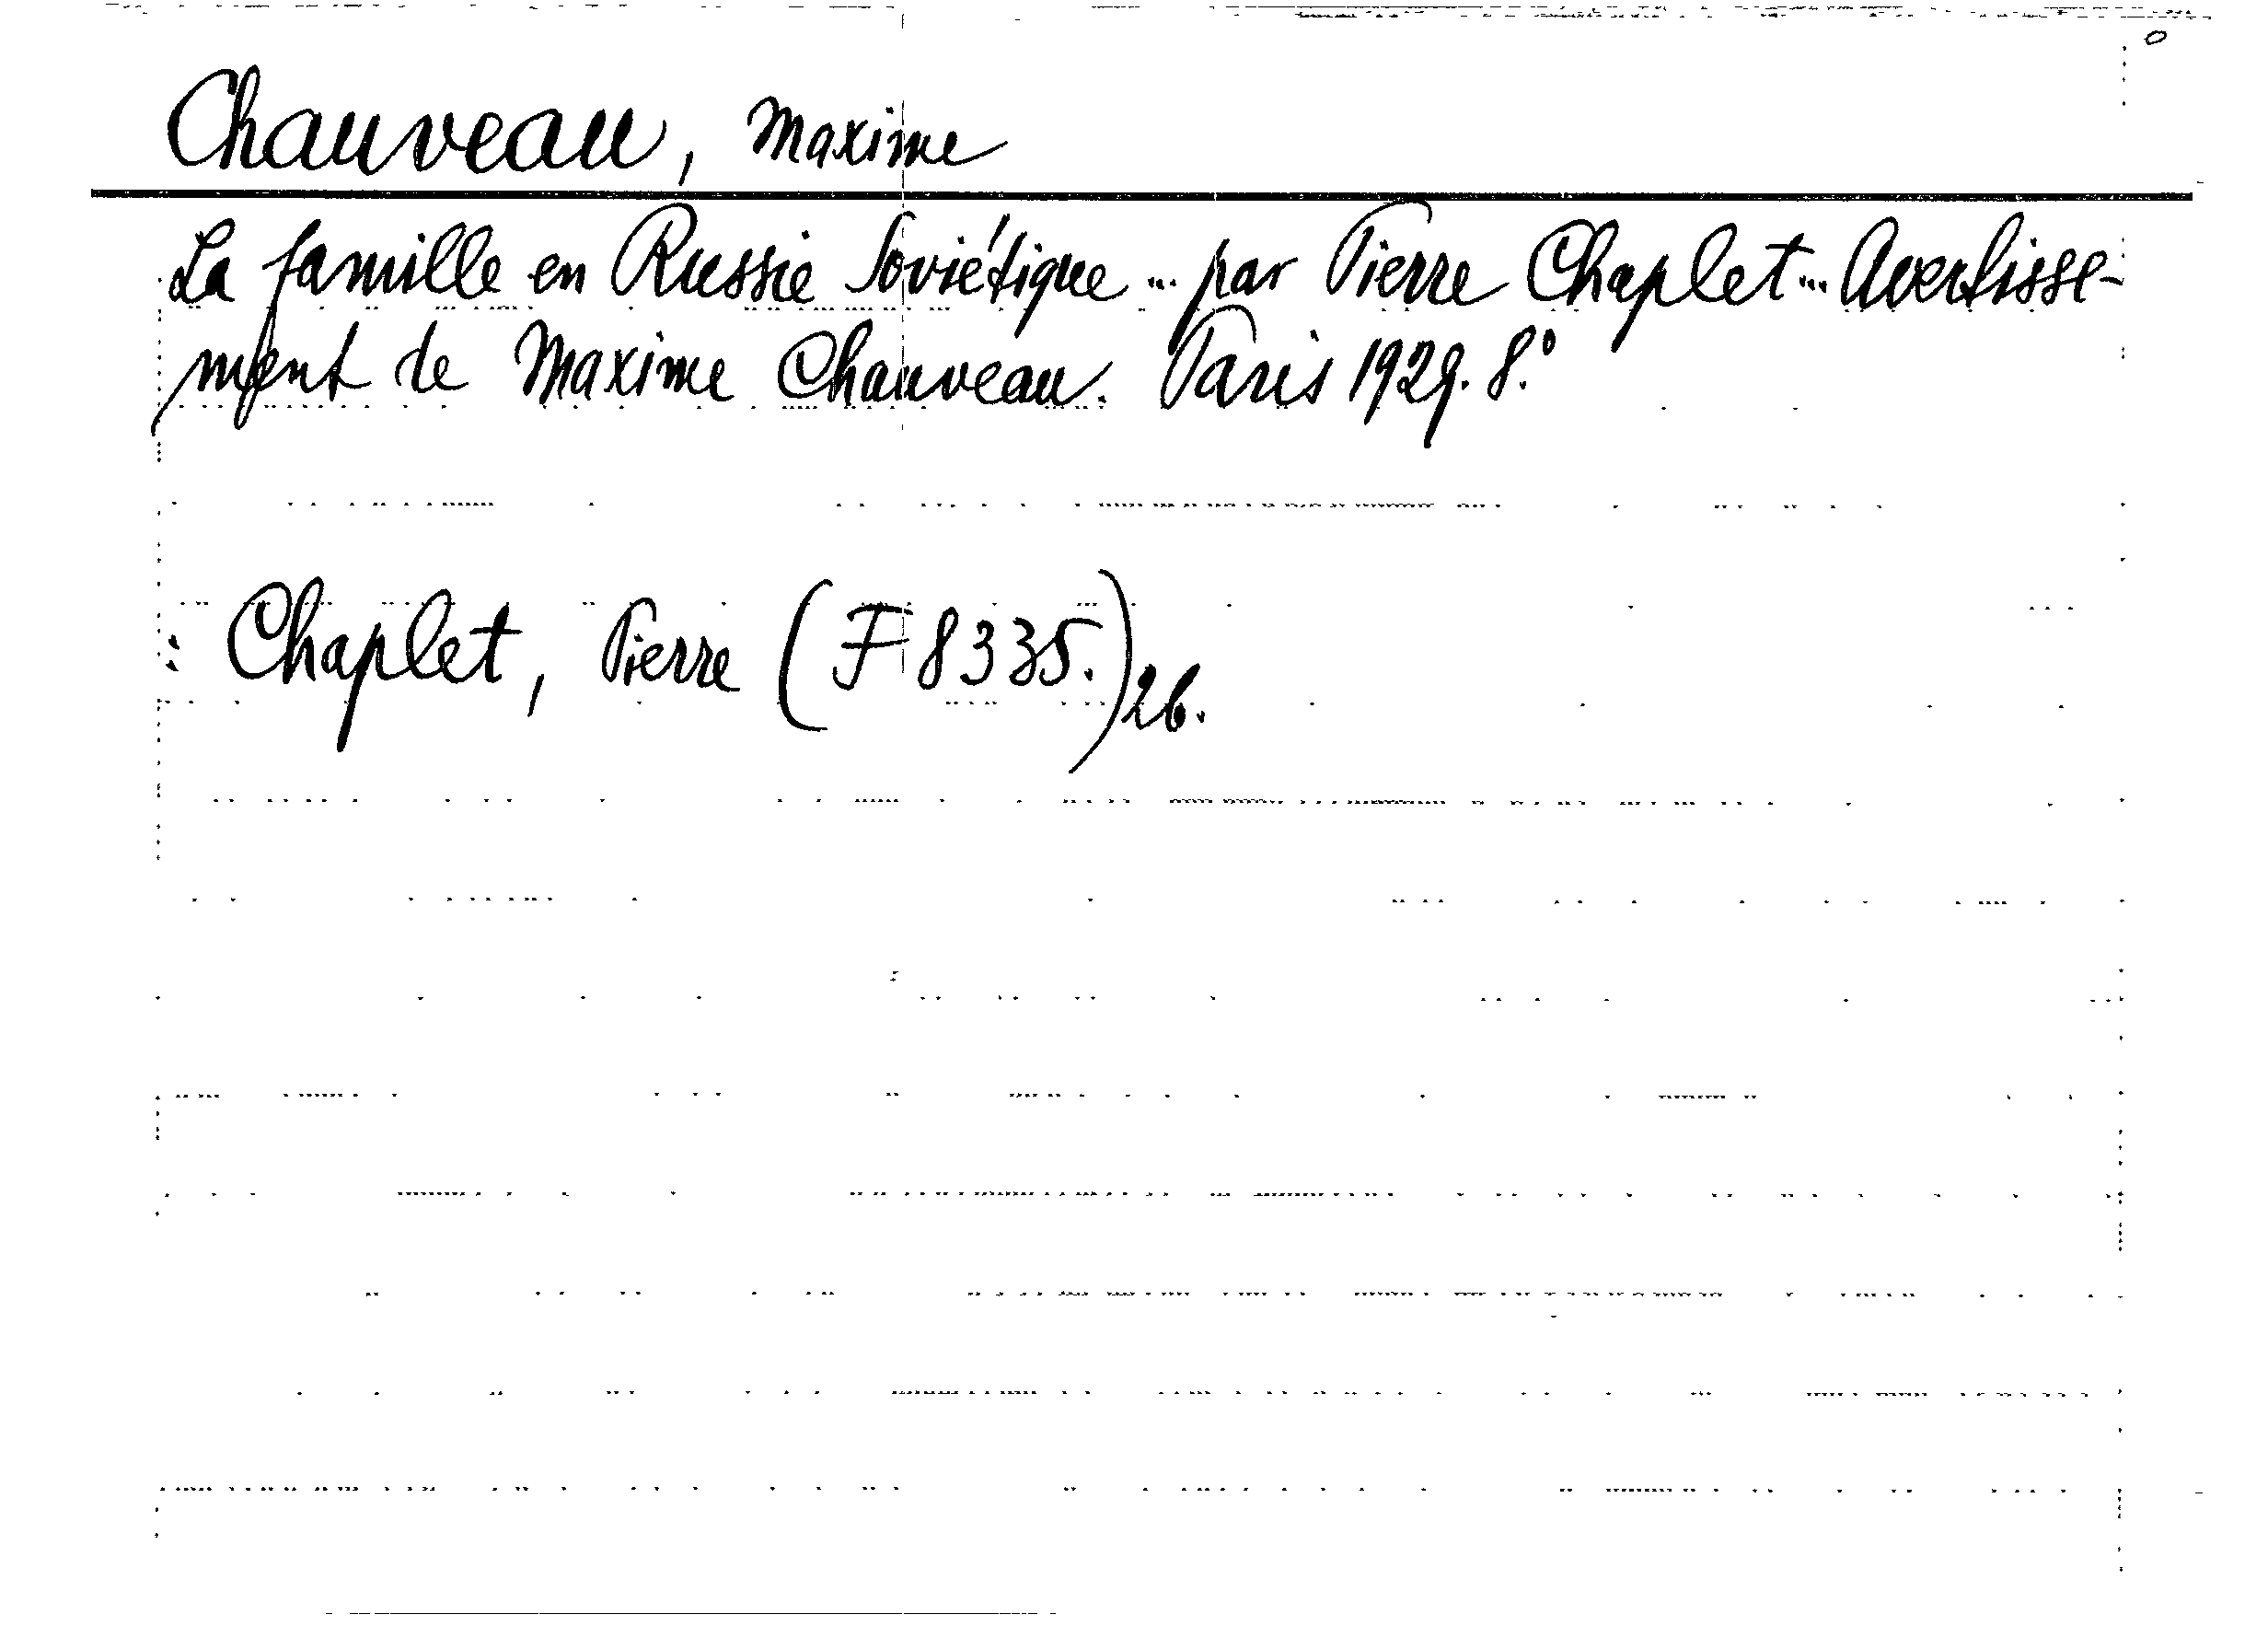 Chauveau, Maxime
La famille en Russie Soviétique ... par Pierre Chaplet ... Avertisse-
ment de Maxime Chauveau. Paris 1929. 8.°
: Chaplet, Pierre (F 8335.) 26.